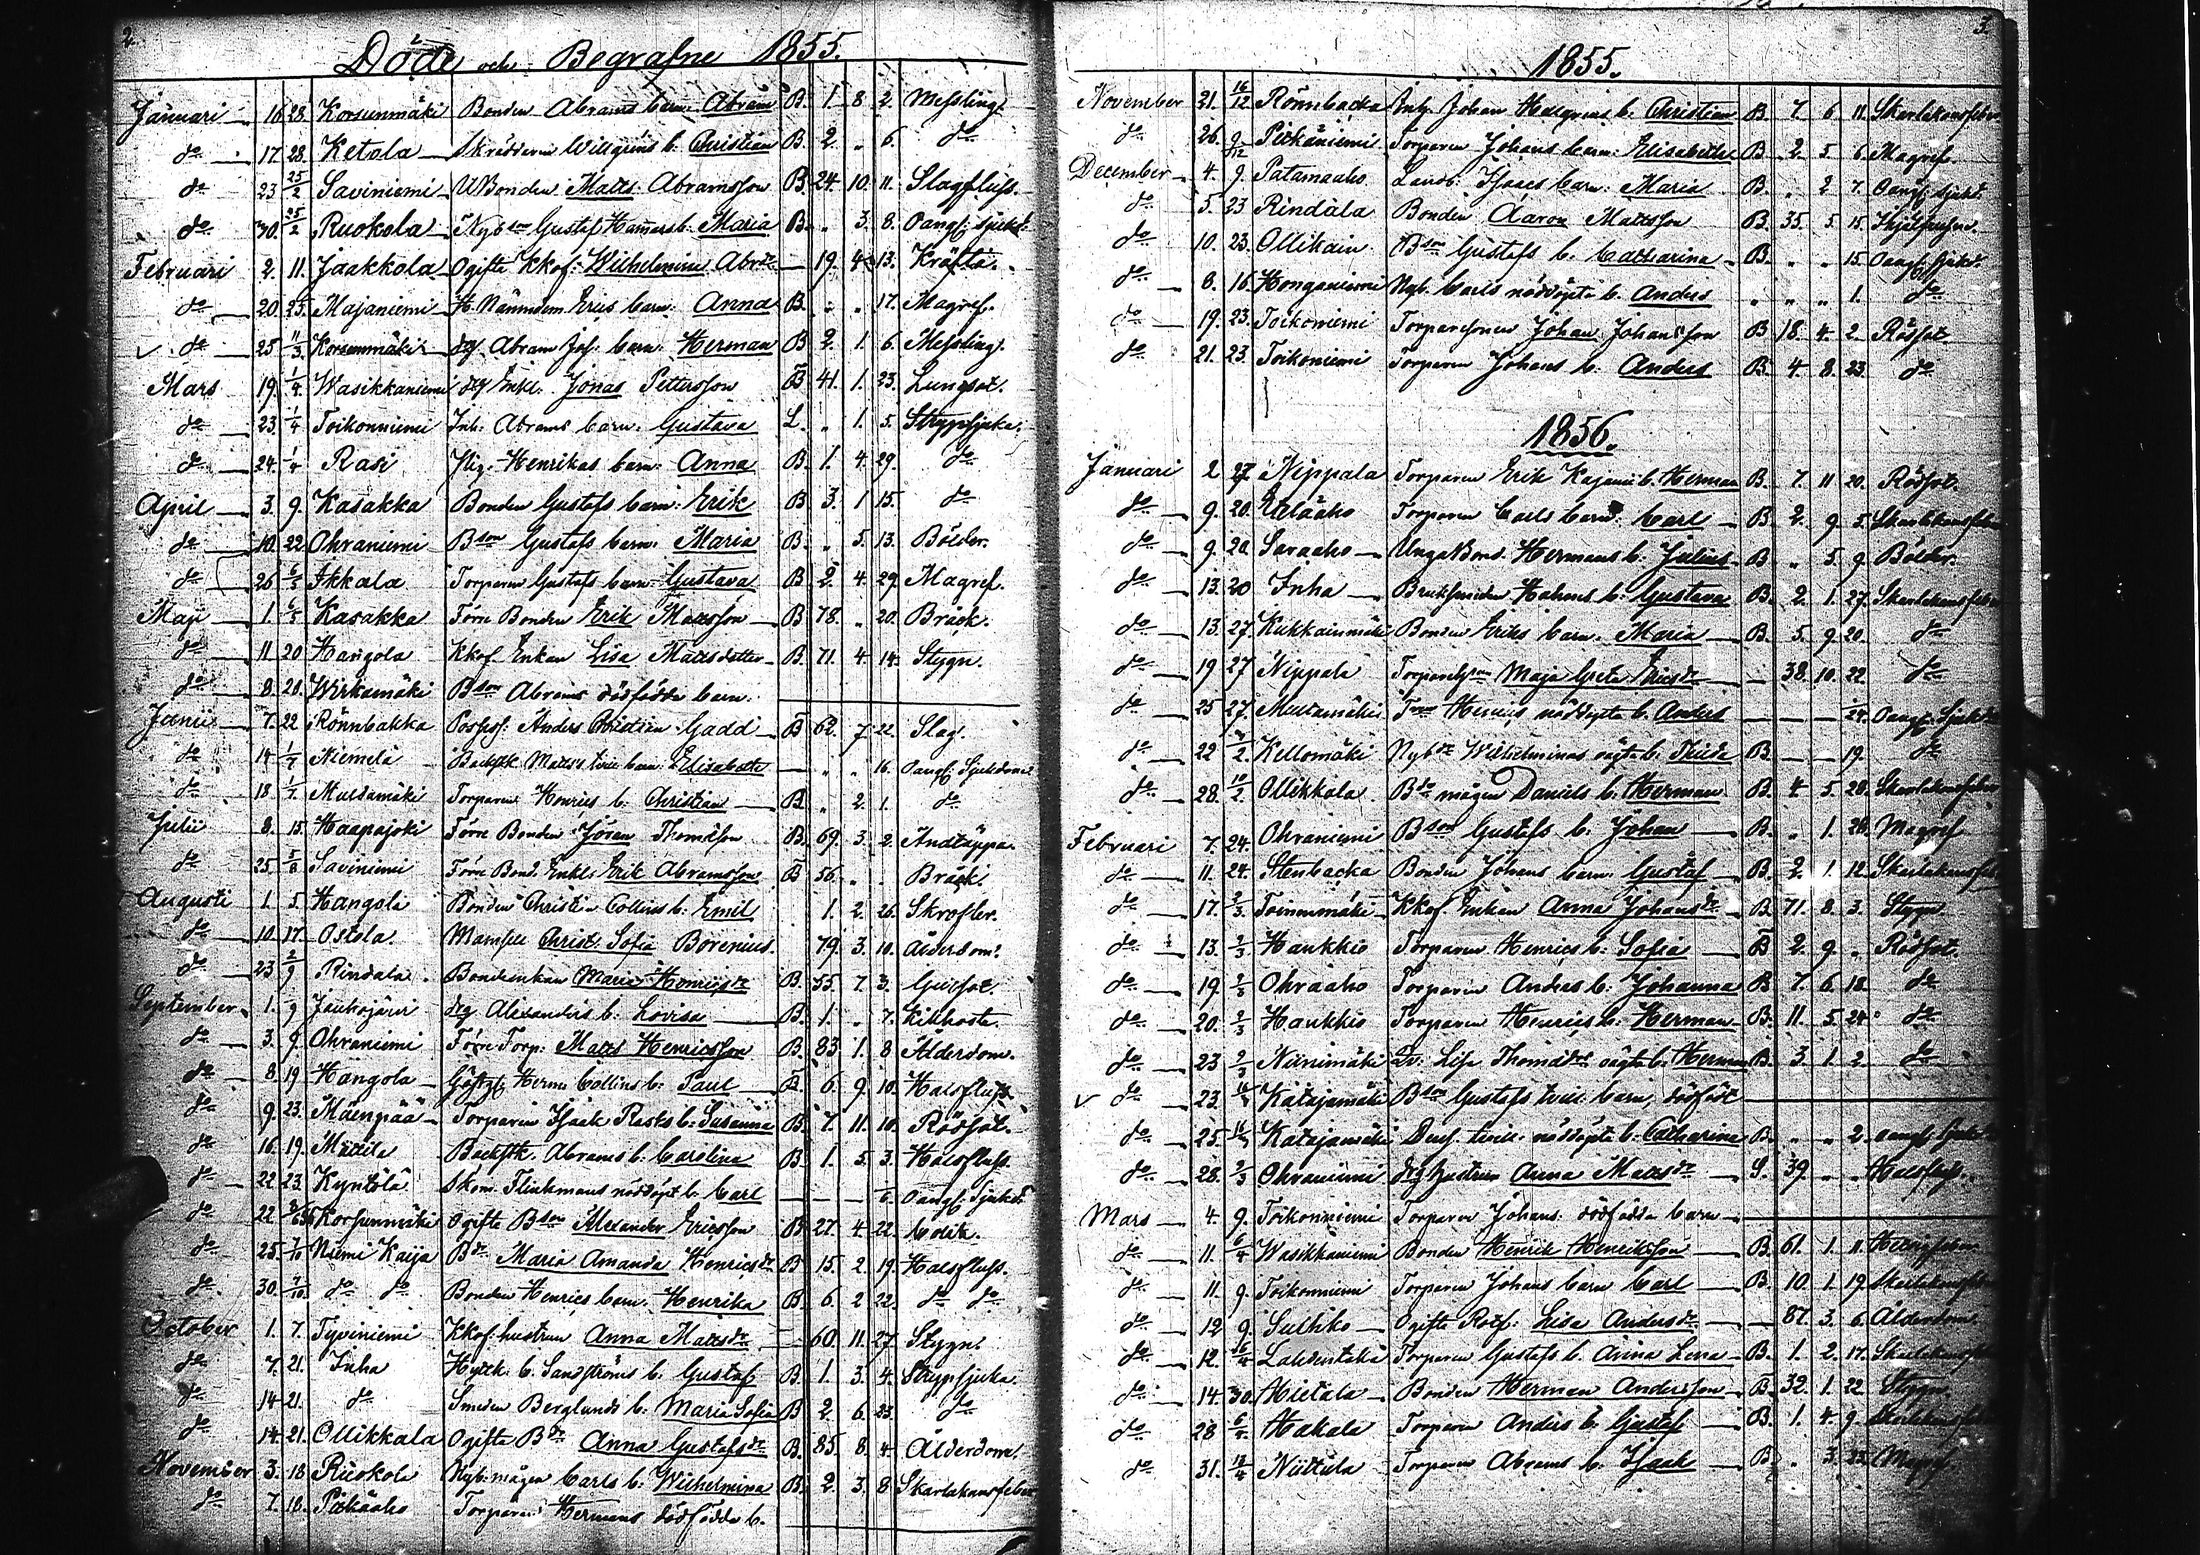 2.
Döde och Begrafne 1855.
Januari 16 28. Korsunmäki Bonden Abrams barn: Abram B. 1. 8. 2. Messling.
do 17. 28. Ketola Skräddaren Willgrens b: Christian B. 2. „ 6. do
do 23 25/2 Saviniemi UBonden Matts Abramsson B 24. 10. 11. Slagfluss.
do 30. 25/2 Ruokola Nybson Gustaf Hammars b: Maria B. „ 3. 8. Oangf: sjukd:
Februari 2. 11. Jaakkola Ogifta Kkof: Wilhelmina Abrdr 19. 4 13. Kräfta.
do 20. 25. Majaniemi H. Nämndem. Erics barn: Anna B. „ „ 17. Magref.
do 25 11/3 Korsunmäki drg Abram Joh: barn: Herman B 2. 1 6. Messling.
Mars 19. 1/4 Wasikkaniemi drg Enkl. Jonas Pettersson B 41. 1. 23. Lungsot.
do 23. 1/4 Toikonniemi Inh: Abrams barn: Gustava L. „ 1. 5. Strypsjuka.
do 24. 1/4 Rasi Henrikas barn: Anna B. 1. 4. 29. do
April 3. 9. Kasakka Bonden Gustafs barn: Erik B 3. 1 15. do
do 10. 22 Ohraniemi Bson Gustafs barn: Maria B. „ 5. 13. Bölder.
do 26 6/5 Ikkala Torparen Gustafs barn: Gustava B 2. 4. 29. Magref.
Maji 1. 6/5 Kasakka Förre Bonden Erik Mattsson B 78. „ 20. Bråck.
do 11 20 Hangola Kkof. Enkan Lisa Mattsdotter B. 71. 4 14. Stygn.
do 8. 20. Wirkamäki Bson Abrams dödfödda barn.
Junii 7. 22 Rönnbakka Possess: Anders Christian Gadd B 62. 7. 22. Slag.
do 14 1/7 Niemelä Backstk Matts's tvill: barn: Elisabeth „ „ 16. Oangf: Sjukdom
do 18 1/7 Multamäki Torparen Henrics b: Christian B. „ 2. 1. do
Julii 8. 15. Haapajoki Förre Bonden Jöran Thomasson B. 69. 3 2. Andtäppa.
do 25 5/8 Saviniemi Förre Bond. Enkl: Erik Abramsson B 56. „ „ Bråck.
Augusti 1. 5. Hangola Bonden Christian Collins b: Emil 1. 2. 26. Skrofler.
do 10. 17. Ostola. Mamsell Christ. Sofia Borenius. 79. 3. 10. Ålderdom.
do 23 2/9 Rindala. Bondeenkan Maria Henricsdr B. 55. 7 3. Gulsot.
September 1. 9 Jauhojärvi drg Alexanders b: Lovisa B. 1. „ 7. Kikhosta.
do 3. 9. Ohraniemi Förre Torp: Matts Henricsson B. 83 1. 8 Ålderdom.
do 8. 19 Hangola Herm: Collins b: Paul B. 6. 9. 10. Halsfluss.
do 9. 23. Mäenpää Torparen Isaak Rasks b: Susanna B. 7. 11. 10. Rödsot.
do 16. 19. Mattila Backstk. Abrams b: Carolina B. 1. 5. 3. Halsfluss.
do 22. 23. Kyntölä Skom. Flinkmans nöddöpt b: Carl Oangf: Sjukd:
do 22 Korsunmäki Ogifta Bson Alexander Ericsson B 27. 4. 22. Colik.
do 25. 7/10 Niemi Kaija Bdr Maria Amanda Henricsdr B 15. 2. 19. Halsfluss.
do 30. 7/10 do do Bonden Henrics barn: Henrika B. 6. 2 22. do do
October 1. 7. Tyviniemi Kkof. hustrun Anna Mattsdr 60. 11. 27. Stygn.
do 7. 21. Inha Hyttk: b. Sandströms b: Gustaf B. 1. 3. 4. Strypsjuka.
do 14 21. do Smeden Berglunds b: Maria Sofia B 2. 6. 23. do
do 14. 21. Ollikkala Ogifta Bdr Anna Gustafsdr B. 85. 8. 4. Ålderdom.
November 3. 18 Ruokola Nyb: mågen Carls b: Wilhelmina B. 2. 3. 8 Skarlakansfeber
do 7. 18. Pitkäaho Torparen Hermans dödfödda b.
3.
1855.
November 21. 16/12 Rönnbacka Johan Hallgrens b: Christian B. 7. 6 11 Skarlakansfeber
do 26. 9/12 Pitkäniemi Torparen Johans barn: Elisabeth B 2. 5 6. Magref
December 4. 9. Patamaaho Landb: Isaacs barn: Maria B. „ 2 7. Oangf: sjukd:
do 5. 23 Rindala Bonden Aaron Mattsson B 35. 5. 15.
do 10. 23. Ollikain Bson Gustafs b. Catharina B. „ „ 15. Oangf: sjukd.
do 8. 16. Honganiemi Nyb. Carls nöddöpta b. Anders „ „ „ 1. do
do 19. 23. Toikoniemi Torparesonen Johan Johansson B 18. 4. 2. Rödsot.
do 21. 23. Toikoniemi Torparen Johans b: Anders B. 4 8. 23. do
1856.
Januari 2 27. Nippala Torparen Erik Kajanii b. Herman B. 7. 11 20. Rödsot.
do 9. 20. Eteläaho Torparen Carls barn: Carl B. 2. 9. 5. Skarlakansfeber
do 9. 20. Saraaho Unga Bond. Hermans b: Julius B „ 5. 9. Bölder.
do 13. 20 Inha Bruksmeden Holms b: Gustava B. 2. 1. 27. Skarlakansfeber
do 13. 27. Kukkainmäki Bonden Eriks barn: Maria B. 5. 9. 20. do
do 19 27 Nippala Maja Greta Ericsdr 38. 10. 22 do
do 25 27. Multamäki Henrics nöddöpta b: Anders 24. Oangf. Sjukd
do 22 Kellomäki Nybdr Wilhelminas oägta b: Thilda B. 19. do
do 28. 10/2 Ollikkala Bde mågen Daniels b: Herman B. 4. 5. 28. Skarlakansfeber
Februari 7. 24. Ohraniemi Bson Gustafs b: Johan B. „ 1. 28. Magref
do 11. 24. Stenbacka Bonden Johans barn: Gustaf B. 2. 1. 12. Skarlakansfeb
do 17. 2/3 Toinenmäki Kkof. Enkan Anna Johansdr B. 71. 8. 3. Stygn
do 13. 2/3 Haukkio Torparen Henrics b: Sofia B 2. 9. „ Rödsot.
do 19. 2/3 Ohraaho Torparen Anders b: Johanna B 7. 6. 18. do
do 20. 2/3 Haukkio Torparen Henrics b: Herman B. 11. 5. 24 do
do 23 2/3 Niinimäki Lisa Thomasdr oägta b: Herman B. 3. 1. 2. do
do 23. Katajamäki Bson Gustafs tvill: barn, dödfödt
do 25. Katajamäki Dess tvill. nöddöpta b: Catharina B. „ „ 2. Oangf: sjukd
do 28. 2/3 Ohraniemi drg hustrun Anna Mattsdr S. 39. „ „ Halsfluss.
Mars 4. 9. Toikonniemi Torparen Johans dödfödda barn
do 11. 6/4 Wasikkaniemi Bonden Henrik Henriksson B. 61. 1. 11.
do 11. 9. Toikonniemi Torparen Johans barn Carl B. 10. 1. 19. Skarlakansfeb
do 12 9. Sulhko Ogifta Rotf: Lisa Andersdr 87. 3. 6. Ålderdom
do 12. Torparen Gustafs b. Anna Lena B. 1. 2. 17. Skarlakansfeb
do 14. 30. Hietala Bonden Herman Andersson B. 32. 1. 22. Stygn.
do 28 6/4 Hakala Torparen Anders b. Gustaf B. 1. 4. 9. Skarlakansfeb
do 31. 13/4 Niittula Torparen Abrams b: Isaak B „ 3. 23. Magref.